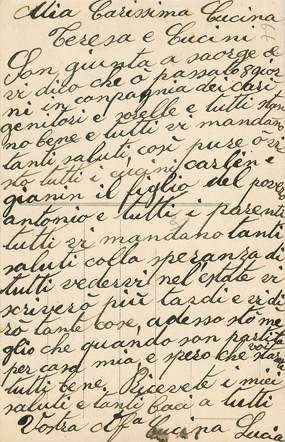 Mia Carissima Cucina
Teresa e Cucini
Son giunta a saorge e
vi dico che ò passato 8 gior
ni in conpagnia dei cari
genitori e sorelle e tutti stan
no bene e tutti vi mandano
tanti saluti, così pure ò vi
sto tutti i cucini, carlin e
gianin il figlio del povero
antonio e tutti i parenti
tutti vi mandano tanti
saluti colla speranza di
tutti vedervi nel'estate vi
scriverò più tardi e vi di
rò tante cose, adesso stò me
glio che quando son partita
per casa mia e spero che voi siate
tutti bene. Ricevete i miei
saluti e tanti baci a tutti
Vostra Aff.a Cucina Lucia